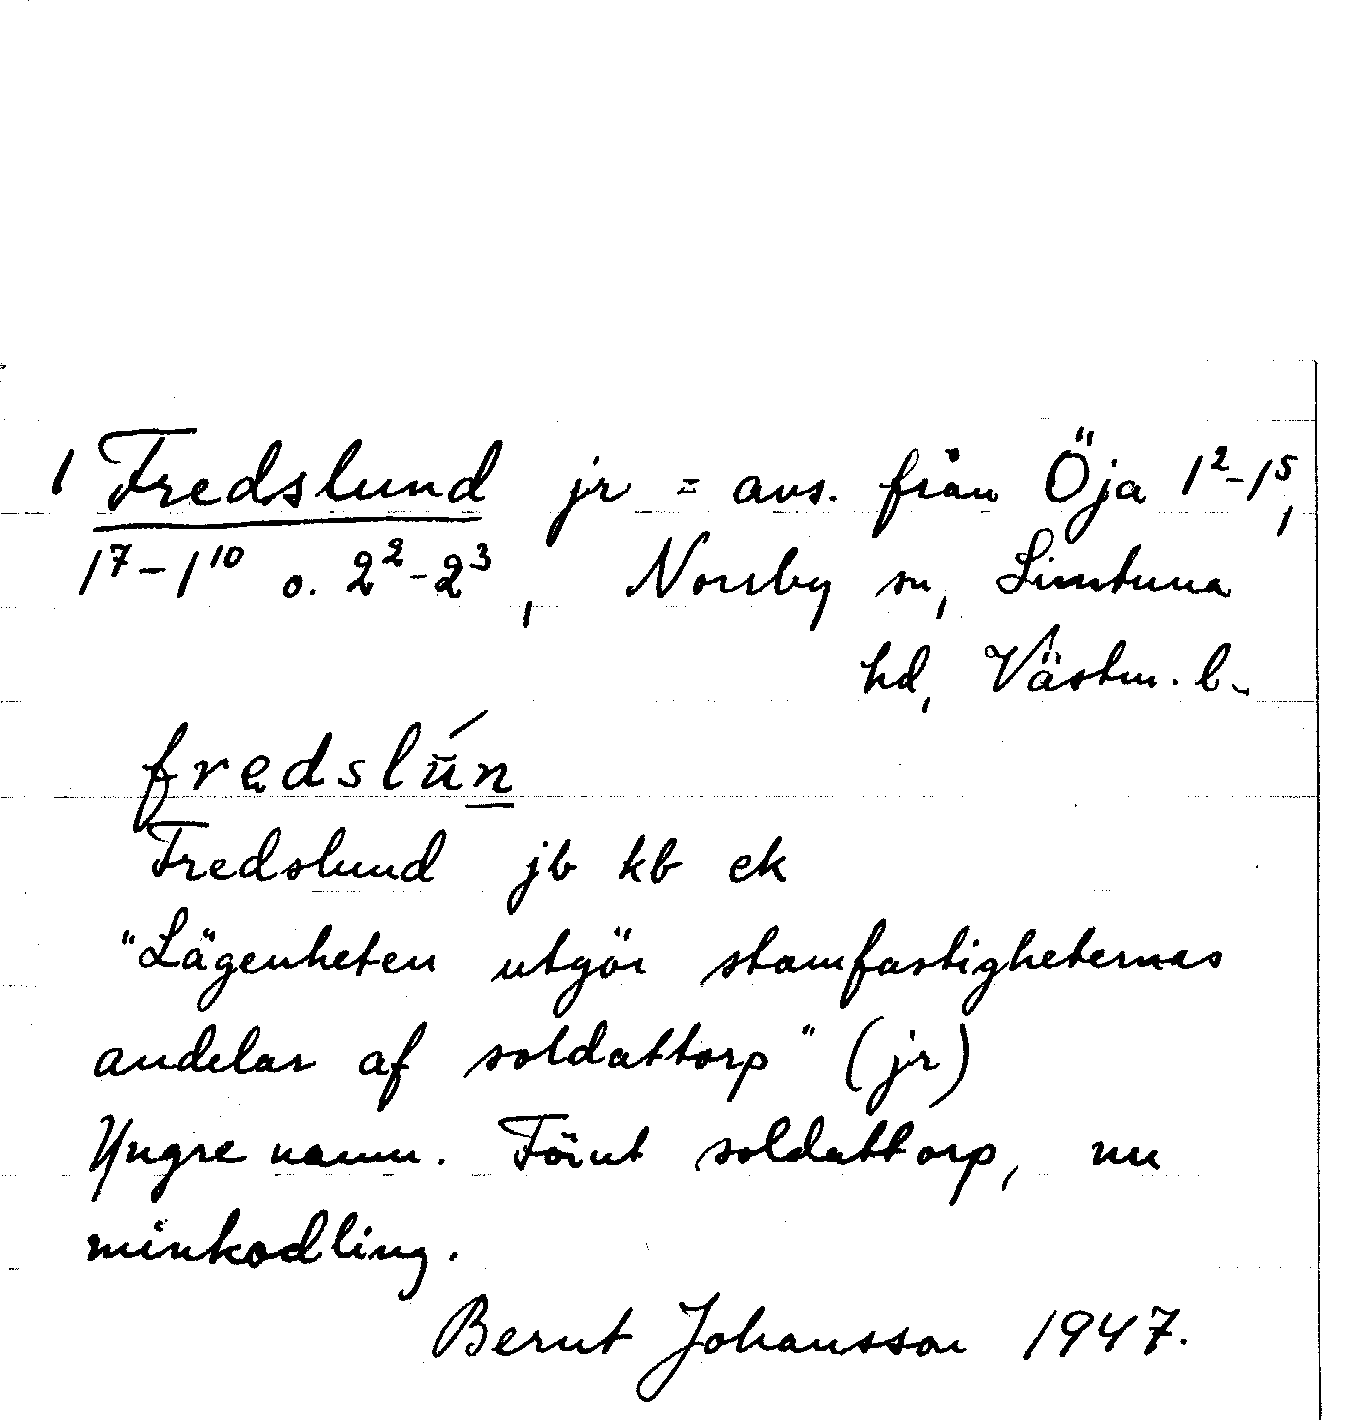 1 Fredslund jr = avs. från Öja 1²-1⁵,
1⁷-1¹⁰ o. 2²-2³, Norrby sn, Simtuna
hd, Västm. l.
fredslún
Fredslund jb kb ek
"Lägenheten utgör stamfastigheternas
andelar af soldattorp" (jr)
Yngre namn. Förut soldattorp, nu
minkodling.
Bernt Johansson 1947.